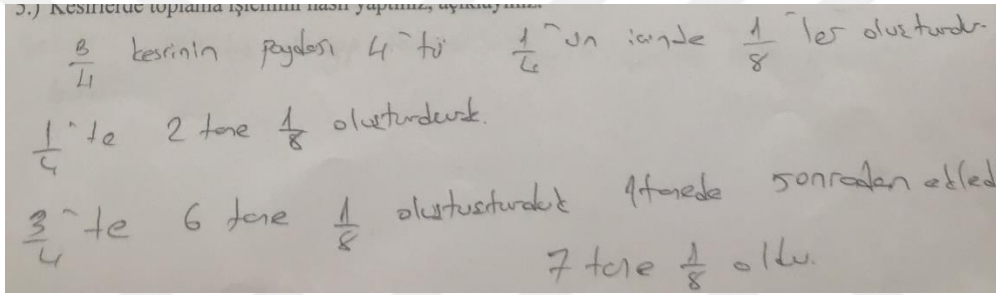 5.) Kesirlerde toplama işlemini nasıl yaptınız, açıklayınız.
3/4 kesrinin paydası 4'tü 1/4'ün içinde 1/8 ler oluşturdu
1/4'te 2 tane 1/8 oluşturduk.
3/4'te 6 tane 1/8 oluştusturduk 1 tanede sonradan ekled
7 tane 1/8 oldu.